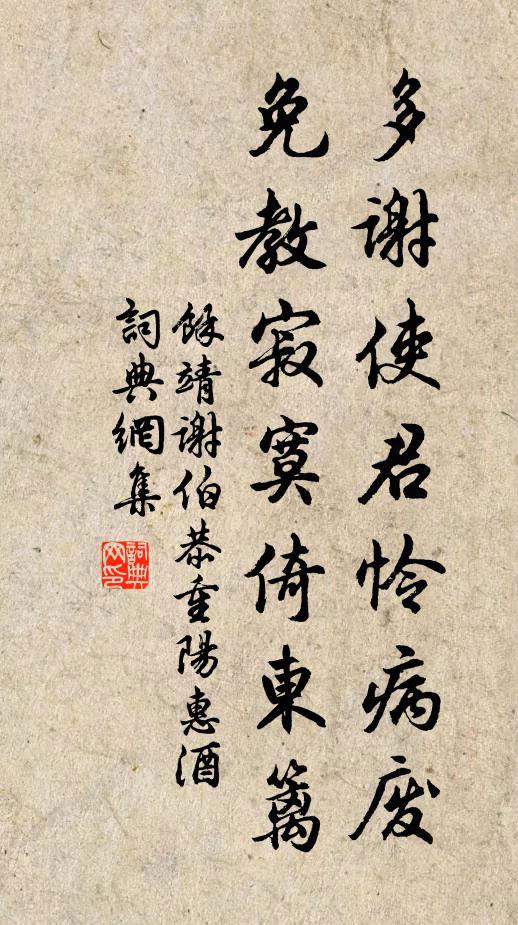 多謝使君怜病废
免教寂寞倚東籬
餘靖谢伯恭重陽惠酒
詞典網集
詞典网印